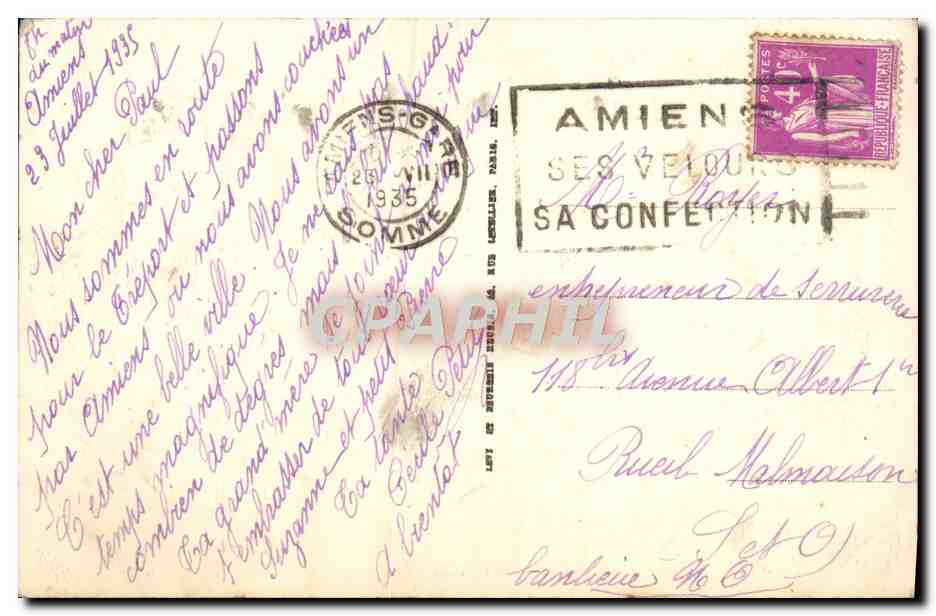 8h
du matin
Amiens
23 Juillet 1935
Mon cher Paul
Nous sommes en route
pour le Tréport et passons
par Amiens où nous avons couchés
C'est une belle ville. Nous avons un
temps magnifique. Je ne sais pas
combien de degrés mais il fait chaud.
Ta grand'mère se joint à moi pour
t'embrasser de tout coeur
Suzanne et petit Pierre
Ta tante
Cecile
a bientot
AMIENS-GARE
23 VII
1935
SOMME
AMIENS
SES VELOURS
SA CONFECTION
POSTES
40c
REPUBLIQUE-FRANCAISE
Mr Royer
entrepreneur de serrurerie
118 bis Avenue Albert 1er
Rueil Malmaison
S et O
banlieue
CPAPHIL